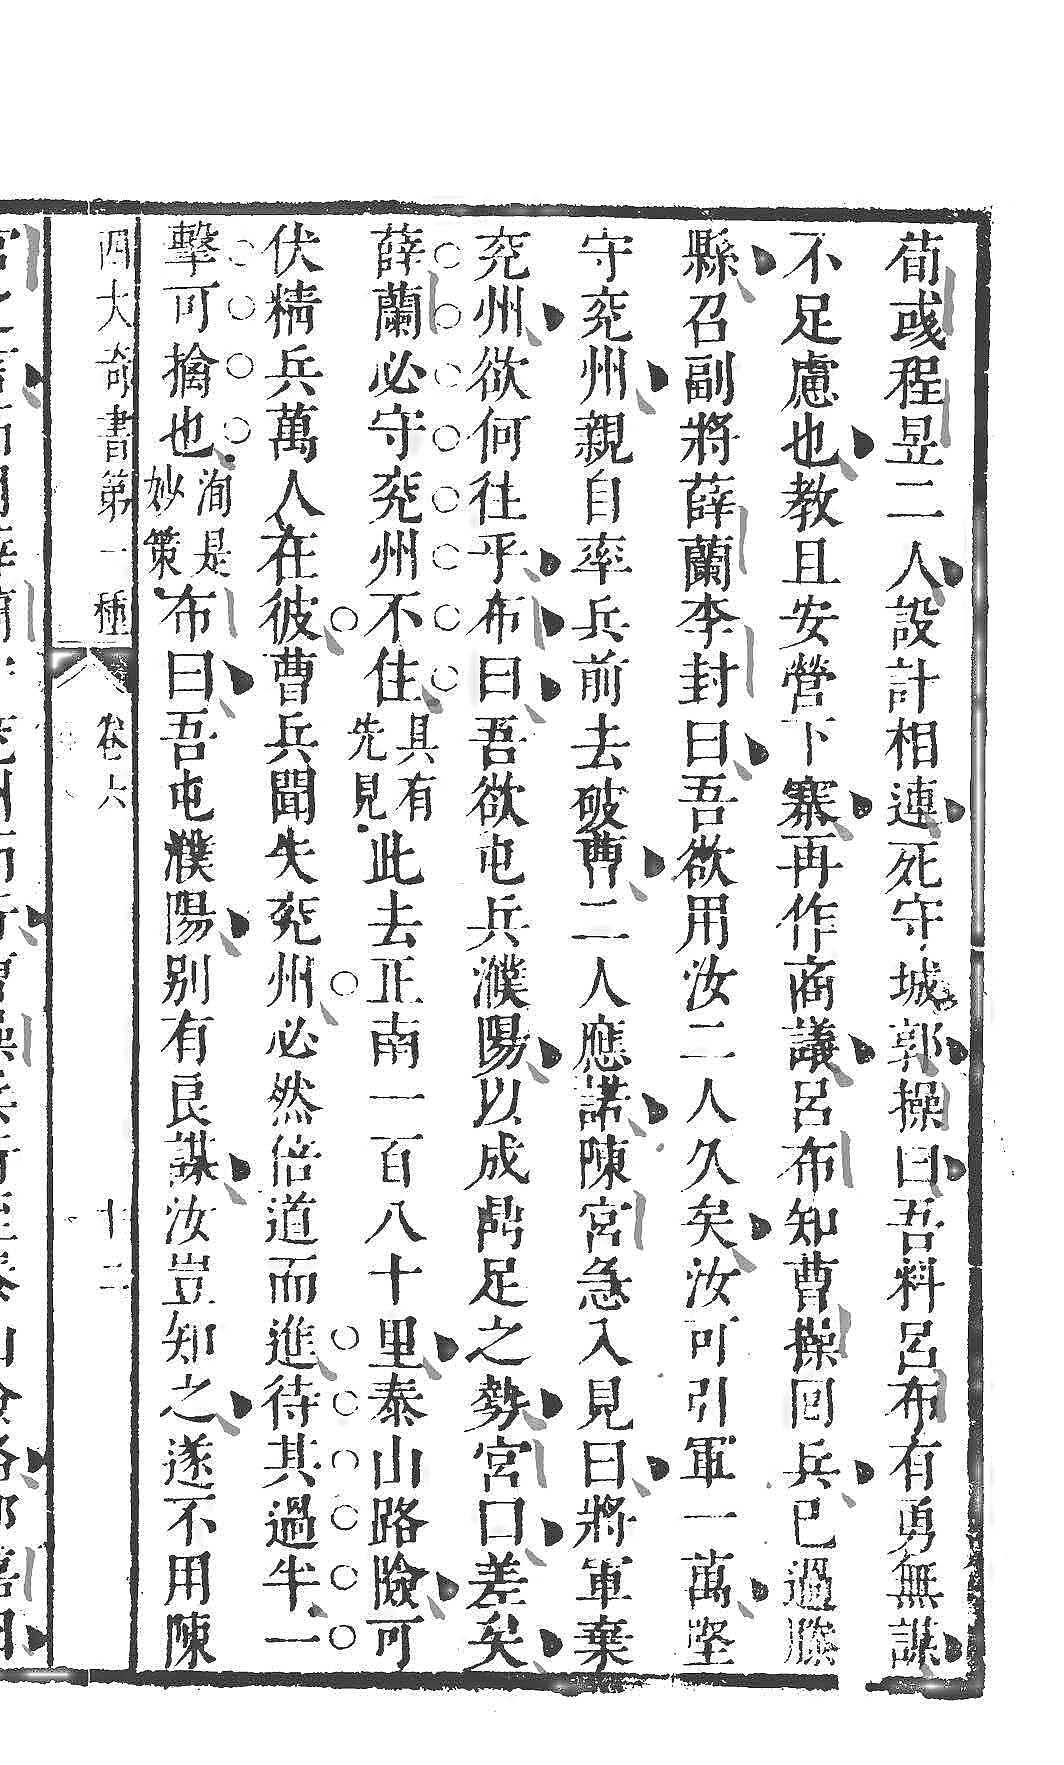 荀彧程昱二人設計相連死守城郭操曰吾料呂布有勇無謀
不足慮也教且安營下寨再作商議呂布知曹操回兵已過滕
縣召副將薛蘭李封曰吾欲用汝二人久矣汝可引軍一萬堅
守兖州親自率兵前去破曹二人應諾陳宮急入見曰將軍棄
兖州欲何往乎布曰吾欲屯兵濮陽以成鼎足之勢宮曰差矣
薛蘭必守兖州不住具有先見此去正南一百八十里泰山路險可
伏精兵萬人在彼曹兵聞失兖州必然倍道而進待其過半一
擊可擒也洵是妙策布曰吾屯濮陽別有良謀汝豈知之遂不用陳
四大奇書第一種 卷六 十二